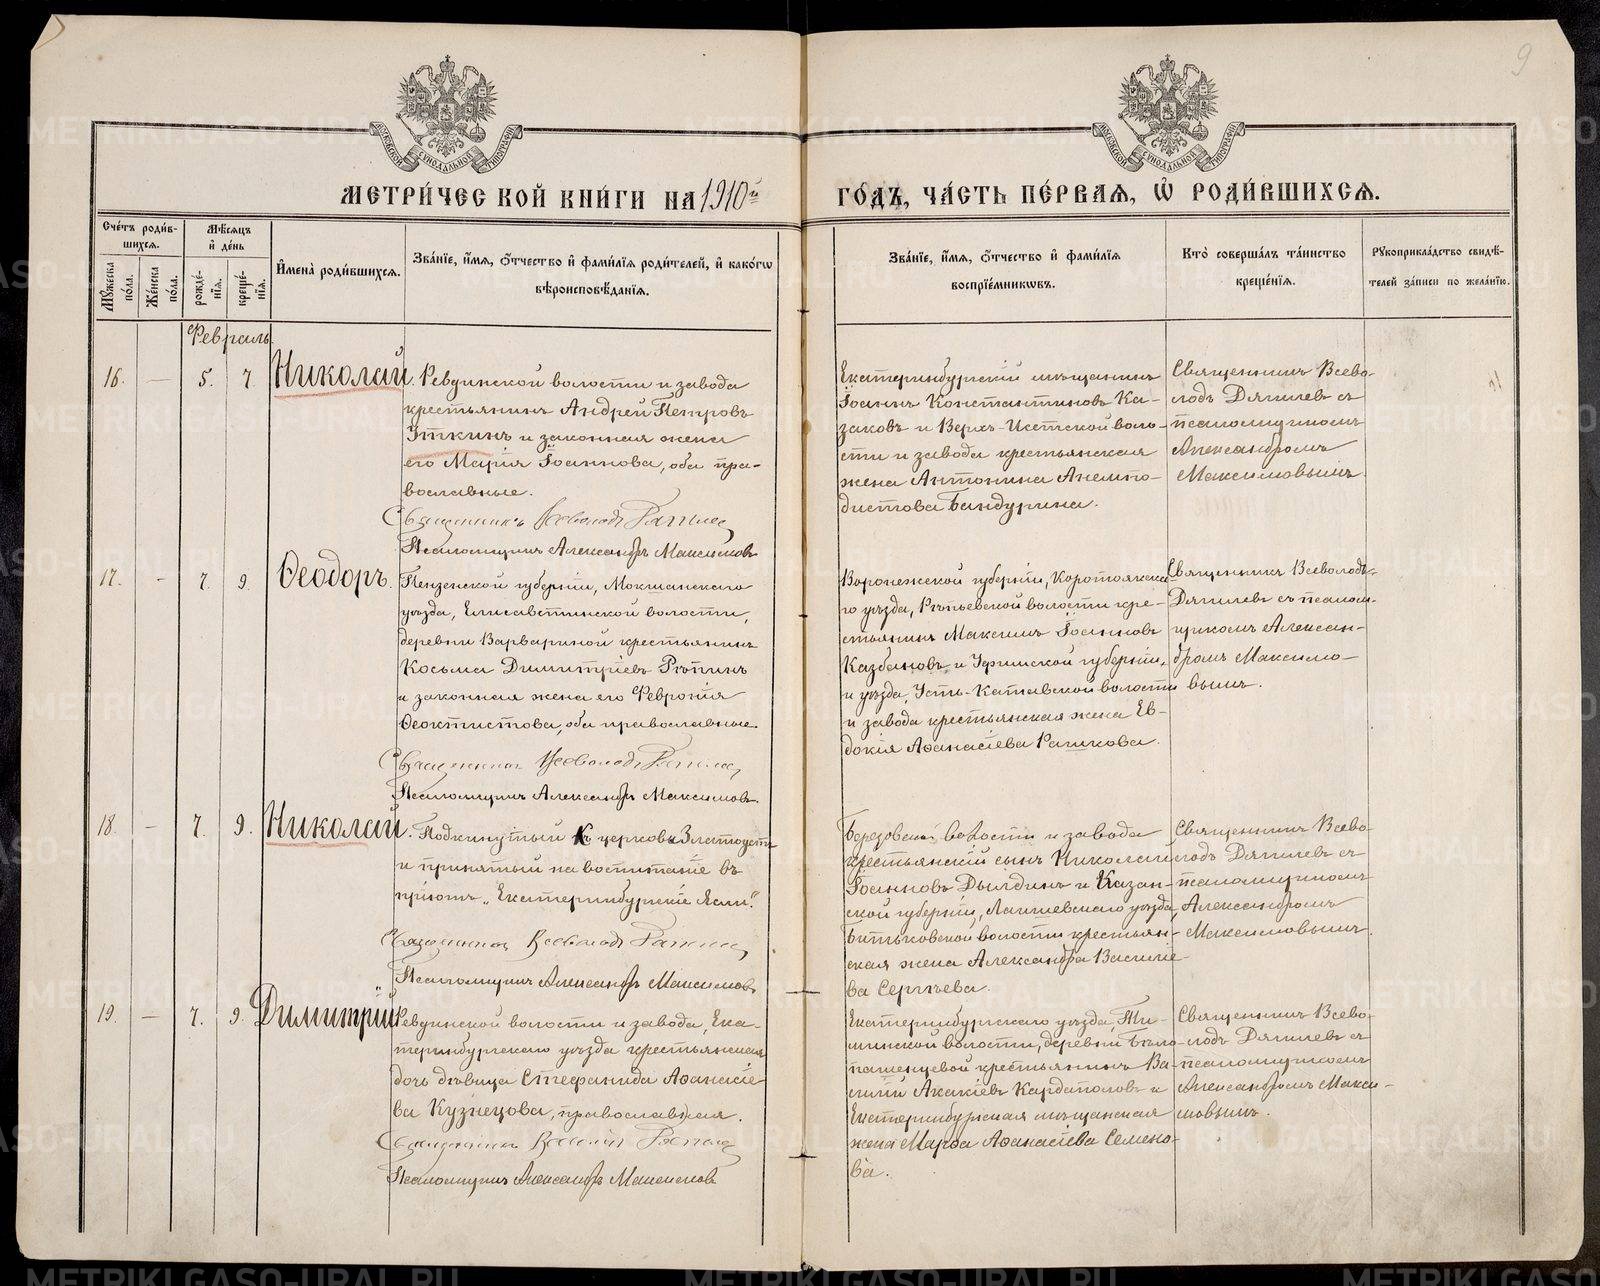 9
МОСКОВСКОЙ СѴНОДАЛЬНОЙ ТИПОГРАФІИ
МОСКОВСКОЙ СѴНОДАЛЬНОЙ ТИПОГРАФІИ
МЕТРИ́ЧЕСКОЙ КНИ́ГИ НА 1910й
ГО́ДЪ, ЧА́СТЬ ПЕ́РВАЯ, Ѽ РОДИ́ВШИХСѦ.
Сче́тъ роди́в-
шихся.
Мѣ́сяцъ
и҆ де́нь
Му́жеска по́ла.
Же́нска по́ла.
рожде́-
нїя.
креще́-
нїя.
И҆мена̀ роди́вшихся.
Зва́нїе, и҆́мя, ѻ҆́тчество и҆ фами́лїя роди́телей, и҆ како́гѡ
вѣроисповѣ́данїя.
Зва́нїе, и҆́мя, ѻ҆́тчество и҆ фами́лїя
воспрїе́мникѡвъ.
Кто̀ соверша́лъ та́инство
креще́нїя.
Рꙋкоприкла́дство свидѣ́-
телей за́писи по жела́нїю.
Февраль
16. — 5. 7. Николай.
Ревдинской волости и завода
крестьянинъ Андрей Петровъ
Уткинъ и законная жена
его Марія Іоаннова, оба пра-
вославные.
Священникъ Всеволодъ Дягилев
Псаломщикъ Александръ Максимовъ
Екатеринбургскій мѣщанинъ
Іоаннъ Константиновъ Ка-
заковъ и Верхъ-Исетской воло-
сти и завода крестьянская
жена Антонина Анемпо-
дистова Бандурина.
Священникъ Всево-
лодъ Дягилевъ съ
псаломщикомъ
Александромъ
Максимовымъ.
17. — 7. 9. Ѳеодоръ.
Пензенской губерніи, Мокшанскаго
уѣзда, Елисаветинской волости,
деревни Варвариной крестьянинъ
Косьма Димитріевъ Рѣпинъ
и законная жена его Февронія
Ѳеоктистова, оба православные.
Священникъ Всеволодъ Дягилев
Псаломщикъ Александръ Максимовъ.
Воронежской губерніи, Коротоякска-
го уѣзда, Рѣпьевской волости кре-
стьянинъ Максимъ Іоанновъ
Казбановъ и Уфимской губерніи,
и уѣзда, Усть-Катавской волости
и завода крестьянская жена Ев-
докія Аѳанасіева Рашкова.
Священникъ Всеволодъ
Дягилевъ съ псалом-
щикомъ Алексан-
дромъ Максимо-
вымъ.
18. — 7. 9. Николай.
Подкинутый къ церкви Златоуста
и принятый на воспитаніе въ
пріютъ „Екатеринбургскіе Ясли“.
Священникъ Всеволодъ Дягилев
Псаломщикъ Александръ Максимовъ
Березовской волости и завода
крестьянскій сынъ Николай
Іоанновъ Дылдинъ и Казан-
ской губерніи, Лаишевскаго уѣзда,
волости крестьян-
ская жена Александра Василіе-
ва Сергѣева.
Священникъ Всево-
лодъ Дягилевъ съ
псаломщикомъ
Александромъ
Максимовымъ.
19. — 7. 9. Димитрій
Ревдинской волости и завода, Ека-
теринбургскаго уѣзда крестьянская
дочь дѣвица Стефанида Аѳанасіе-
ва Кузнецова, православная.
Священникъ Дягилев
Псаломщикъ Александръ Максимовъ
Екатеринбургскаго уѣзда,
волости, деревни Бѣло-
крестьянинъ Ва-
силій Акакіевъ Кардаполовъ и
Екатеринбургская мѣщанская
жена Марѳа Аѳанасіева Семено-
ва.
Священникъ Всево-
лодъ Дягилевъ съ
псаломщикомъ
Александромъ Макси-
мовымъ.
METRIKI.GASO-URAL.RU